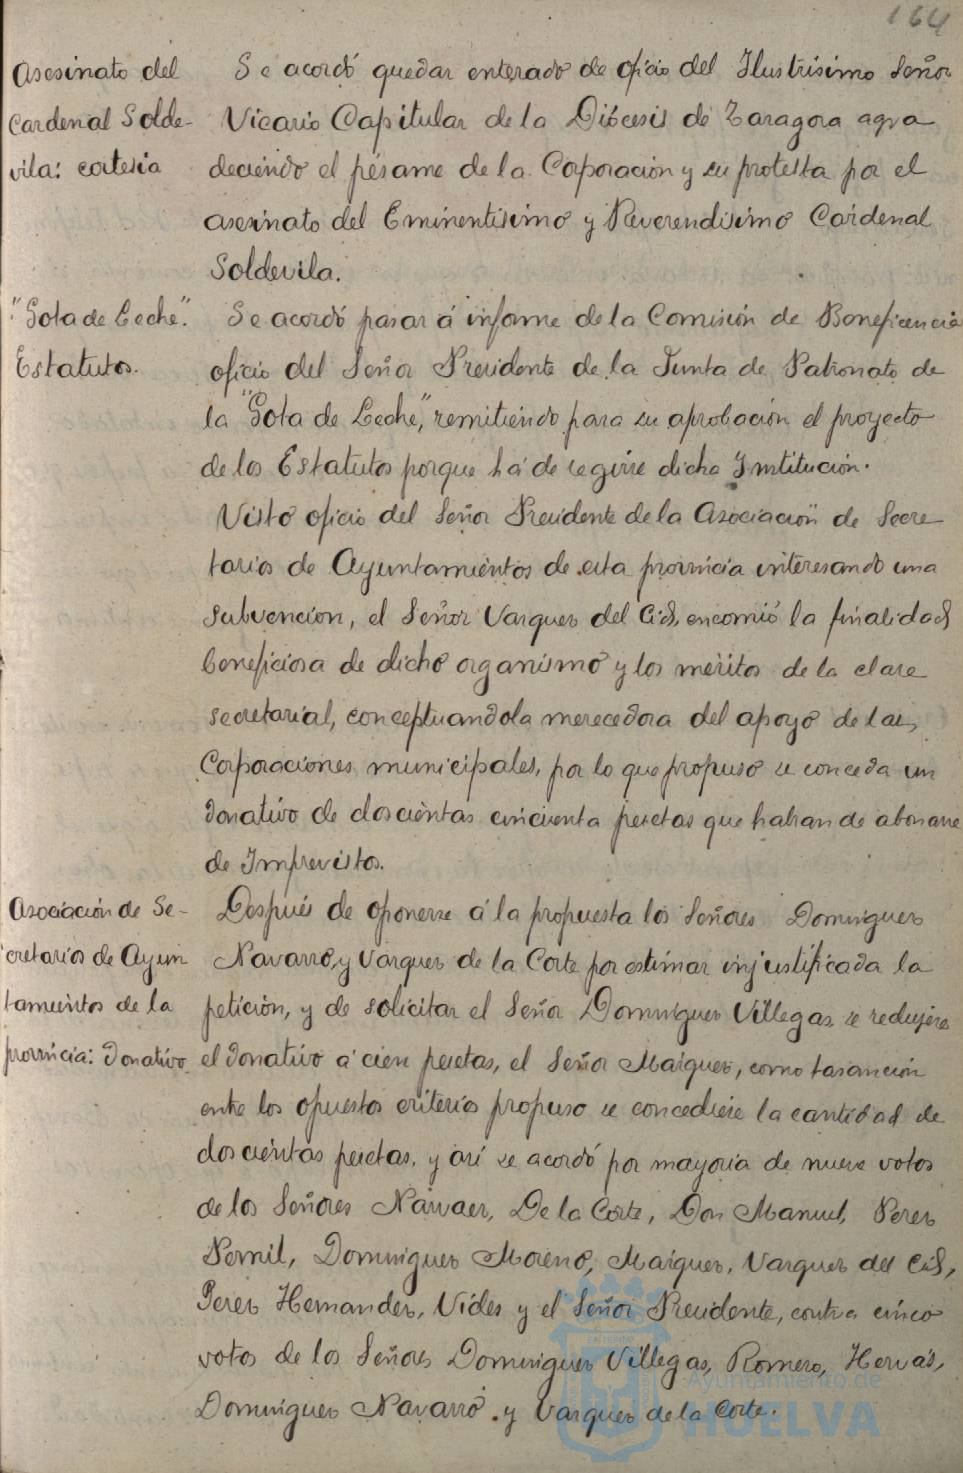 164
Asesinato del
Cardenal Solde-
vila: cortesia
Se acordó quedar enterado de oficio del Ilustrisimo Señor
Vicario Capitular de la Diócesis de Zaragoza agra
deciendo el pésame de la Corporación y su protesta por el
asesinato del Eminentisimo y Reverendisimo Cardenal
Soldevila.
"Gota de Leche".
Estatutos.
Se acordó pasar á informe de la Comisión de Beneficencia
oficio del Señor Presidente de la Junta de Patronato de
la "Gota de Leche", remitiendo para su aprobación el proyecto
de los Estatutos porque há de regirse dicha Institución.
Visto oficio del Señor Presidente de la Asociación de Secre
tarios de Ayuntamientos de esta provincia interesando una
subvencion, el Señor Vazquez del Cid, encomió la finalidad
beneficiosa de dicho organismo y los méritos de la clase
secretarial, conceptuandola merecedora del apoyo de las
Corporaciones municipales, por lo que propuso se conceda un
donativo de doscientas cincuenta pesetas que habran de abonarse
de Imprevistos.
Asociación de Se-
cretarios de Ayun
tamientos de la
provincia: donativo
Después de oponerse á la propuesta los Señores Dominguez
Navarro, y Vazquez de la Corte por estimar injustificada la
petición, y de solicitar el Señor Dominguez Villegas, se redujera
el donativo á cien pesetas, el Señor Maiquez, como tasanción
entre los opuestos criterios propuso se concediese la cantidad de
doscientas pesetas, y asi se acordó por mayoria de nueve votos
de los Señores Narvaez, De la Corte, Don Manuel, Perez
Pernil, Dominguez Moreno, Maiquez, Vazquez del Cid,
Perez Hernandez, Vides y el Señor Presidente, contra cinco
votos de los Señores Dominguez Villegas, Romero, Hervás,
Dominguez Navarro y Vazquez de la Corte.
Ayuntamiento de
HUELVA